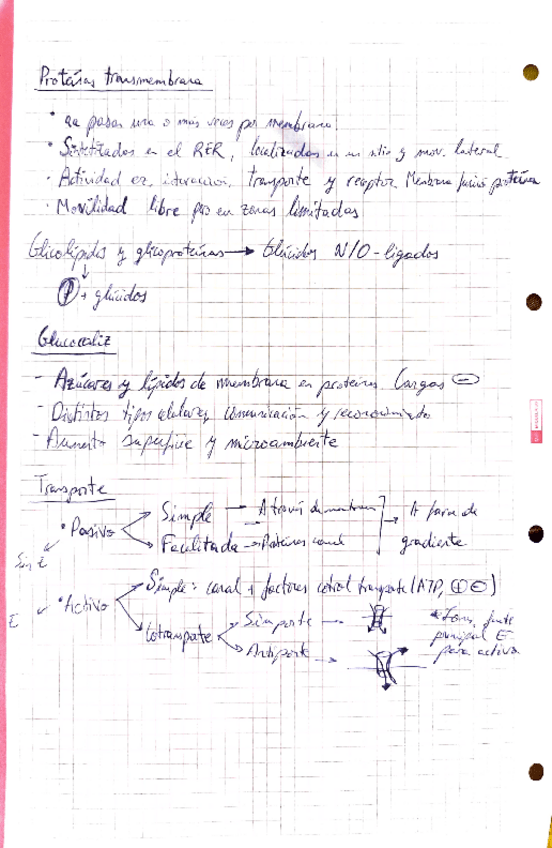 Proteínas transmembrana
• pasan una o más veces por membrana.
• Sintetizadas en el RER, localizadas en un sitio y mov. lateral.
• Actividad ez, interacción, transporte y receptor. Membrana proteína
• Movilidad libre pro en zonas limitadas
Glicolípidos y glicoproteínas → Glúcidos N/O-ligados
P + glúcidos
Glucocaliz
- Azúcares y lípidos de membrana en proteínas. Cargas ⊖
- Distintos tipos celulares, comunicación y reconocimiento
- Aumento superficie y microambiente
Transporte
• Pasivo
Simple → A través de membrana
Facilitada → Proteínas canal
A favor de
gradiente
Sin E
E
• Activo
Simple: canal + factores control transporte (ATP, ⊕⊖)
Cotransporte
Simporte
Antiporte
principal E
para activa